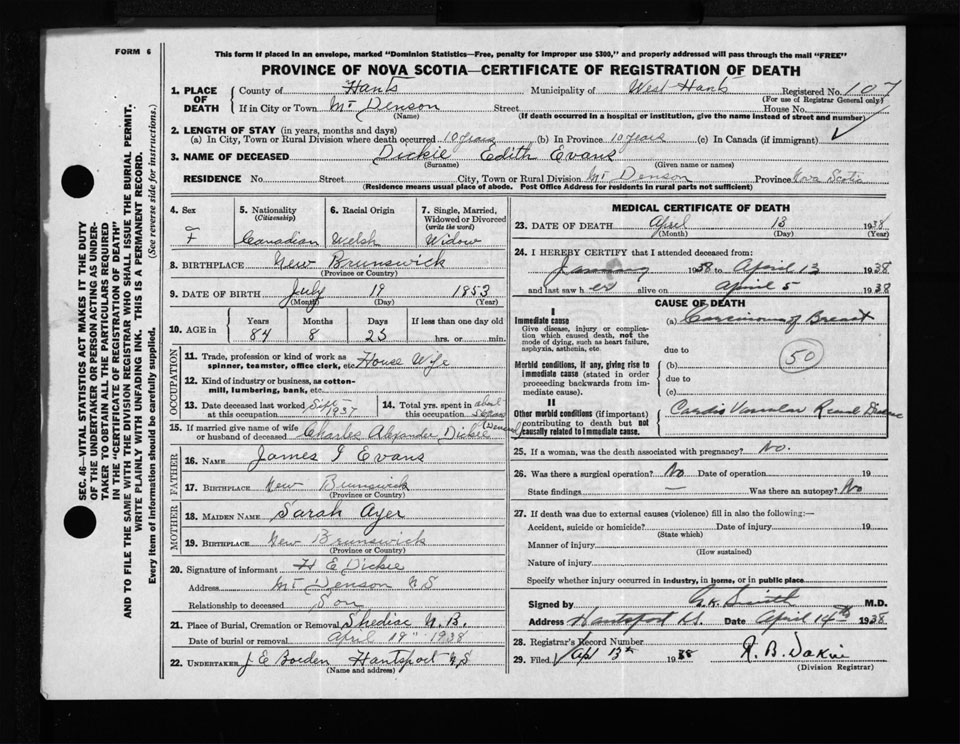 FORM 6
This form if placed in an envelope, marked "Dominion Statistics—Free, penalty for improper use $300," and properly addressed will pass through the mail "FREE"
PROVINCE OF NOVA SCOTIA—CERTIFICATE OF REGISTRATION OF DEATH
SEC. 46—VITAL STATISTICS ACT MAKES IT THE DUTY
OF THE UNDERTAKER OR PERSON ACTING AS UNDER-
TAKER TO OBTAIN ALL THE PARTICULARS REQUIRED
IN THE "CERTIFICATE OF REGISTRATION OF DEATH"
AND TO FILE THE SAME WITH THE DIVISION REGISTRAR WHO SHALL ISSUE THE BURIAL PERMIT.
WRITE PLAINLY WITH UNFADING INK. THIS IS A PERMANENT RECORD.
Every item of information should be carefully supplied. (See reverse side for instructions.)
1. PLACE OF DEATH
County of Hants Municipality of West Hants Registered No. 107
(For use of Registrar General only)
If in City or Town Mt Denson Street House No.
(Name) (If death occurred in a hospital or institution, give the name instead of street and number)
2. LENGTH OF STAY (in years, months and days)
(a) In City, Town or Rural Division where death occurred 10 years (b) In Province 10 years (c) In Canada (if immigrant)
3. NAME OF DECEASED Dickie Edith Evans
(Surname) (Given name or names)
RESIDENCE No. Street City, Town or Rural Division Mt Denson Province Nova Scotia
(Residence means usual place of abode. Post Office Address for residents in rural parts not sufficient)
4. Sex F
5. Nationality (Citizenship) Canadian
6. Racial Origin Welsh
7. Single, Married, Widowed or Divorced (write the word) Widow
8. BIRTHPLACE New Brunswick
(Province or Country)
9. DATE OF BIRTH July 19 1853
(Month) (Day) (Year)
10. AGE in Years Months Days If less than one day old
84 8 25 hrs. or min.
OCCUPATION
11. Trade, profession or kind of work as spinner, teamster, office clerk, etc. House Wife
12. Kind of industry or business, as cotton-mill, lumbering, bank, etc.
13. Date deceased last worked at this occupation Sept 1937
14. Total yrs. spent in this occupation about
15. If married give name of wife or husband of deceased Charles Alexander Dickie
FATHER
16. NAME James I Evans
17. BIRTHPLACE New Brunswick
(Province or Country)
MOTHER
18. MAIDEN NAME Sarah Ayer
19. BIRTHPLACE New Brunswick
(Province or Country)
20. Signature of informant H E Dickie
Address Mt Denson N S
Relationship to deceased Son
21. Place of Burial, Cremation or Removal Shediac N.B.
Date of burial or removal April 19" 1938
22. UNDERTAKER J E Borden Hantsport N S
(Name and address)
MEDICAL CERTIFICATE OF DEATH
23. DATE OF DEATH April 13 1938
(Month) (Day) (Year)
24. I HEREBY CERTIFY that I attended deceased from:
January 1938 to April 13 1938
and last saw her alive on April 5 1938
CAUSE OF DEATH
I
Immediate cause
Give disease, injury or complication which caused death, not the mode of dying, such as heart failure, asphyxia, asthenia, etc.
(a) Carcinoma of Breast
due to
50
Morbid conditions, if any, giving rise to immediate cause (stated in order proceeding backwards from immediate cause).
(b)
due to
(c)
II
Other morbid conditions (if important) contributing to death but not causally related to immediate cause.
Cardio Vascular Renal Disease
25. If a woman, was the death associated with pregnancy? No.
26. Was there a surgical operation? No Date of operation 19
State findings — Was there an autopsy? No
27. If death was due to external causes (violence) fill in also the following:—
Accident, suicide or homicide? Date of injury 19
(State which)
Manner of injury
(How sustained)
Nature of injury
Specify whether injury occurred in industry, in home, or in public place
Signed by G.K. Smith M.D.
Address Hantsport N.S. Date April 14th 1938
28. Registrar's Record Number
29. Filed Apl 13th 1938 R. B. Dakin
(Division Registrar)